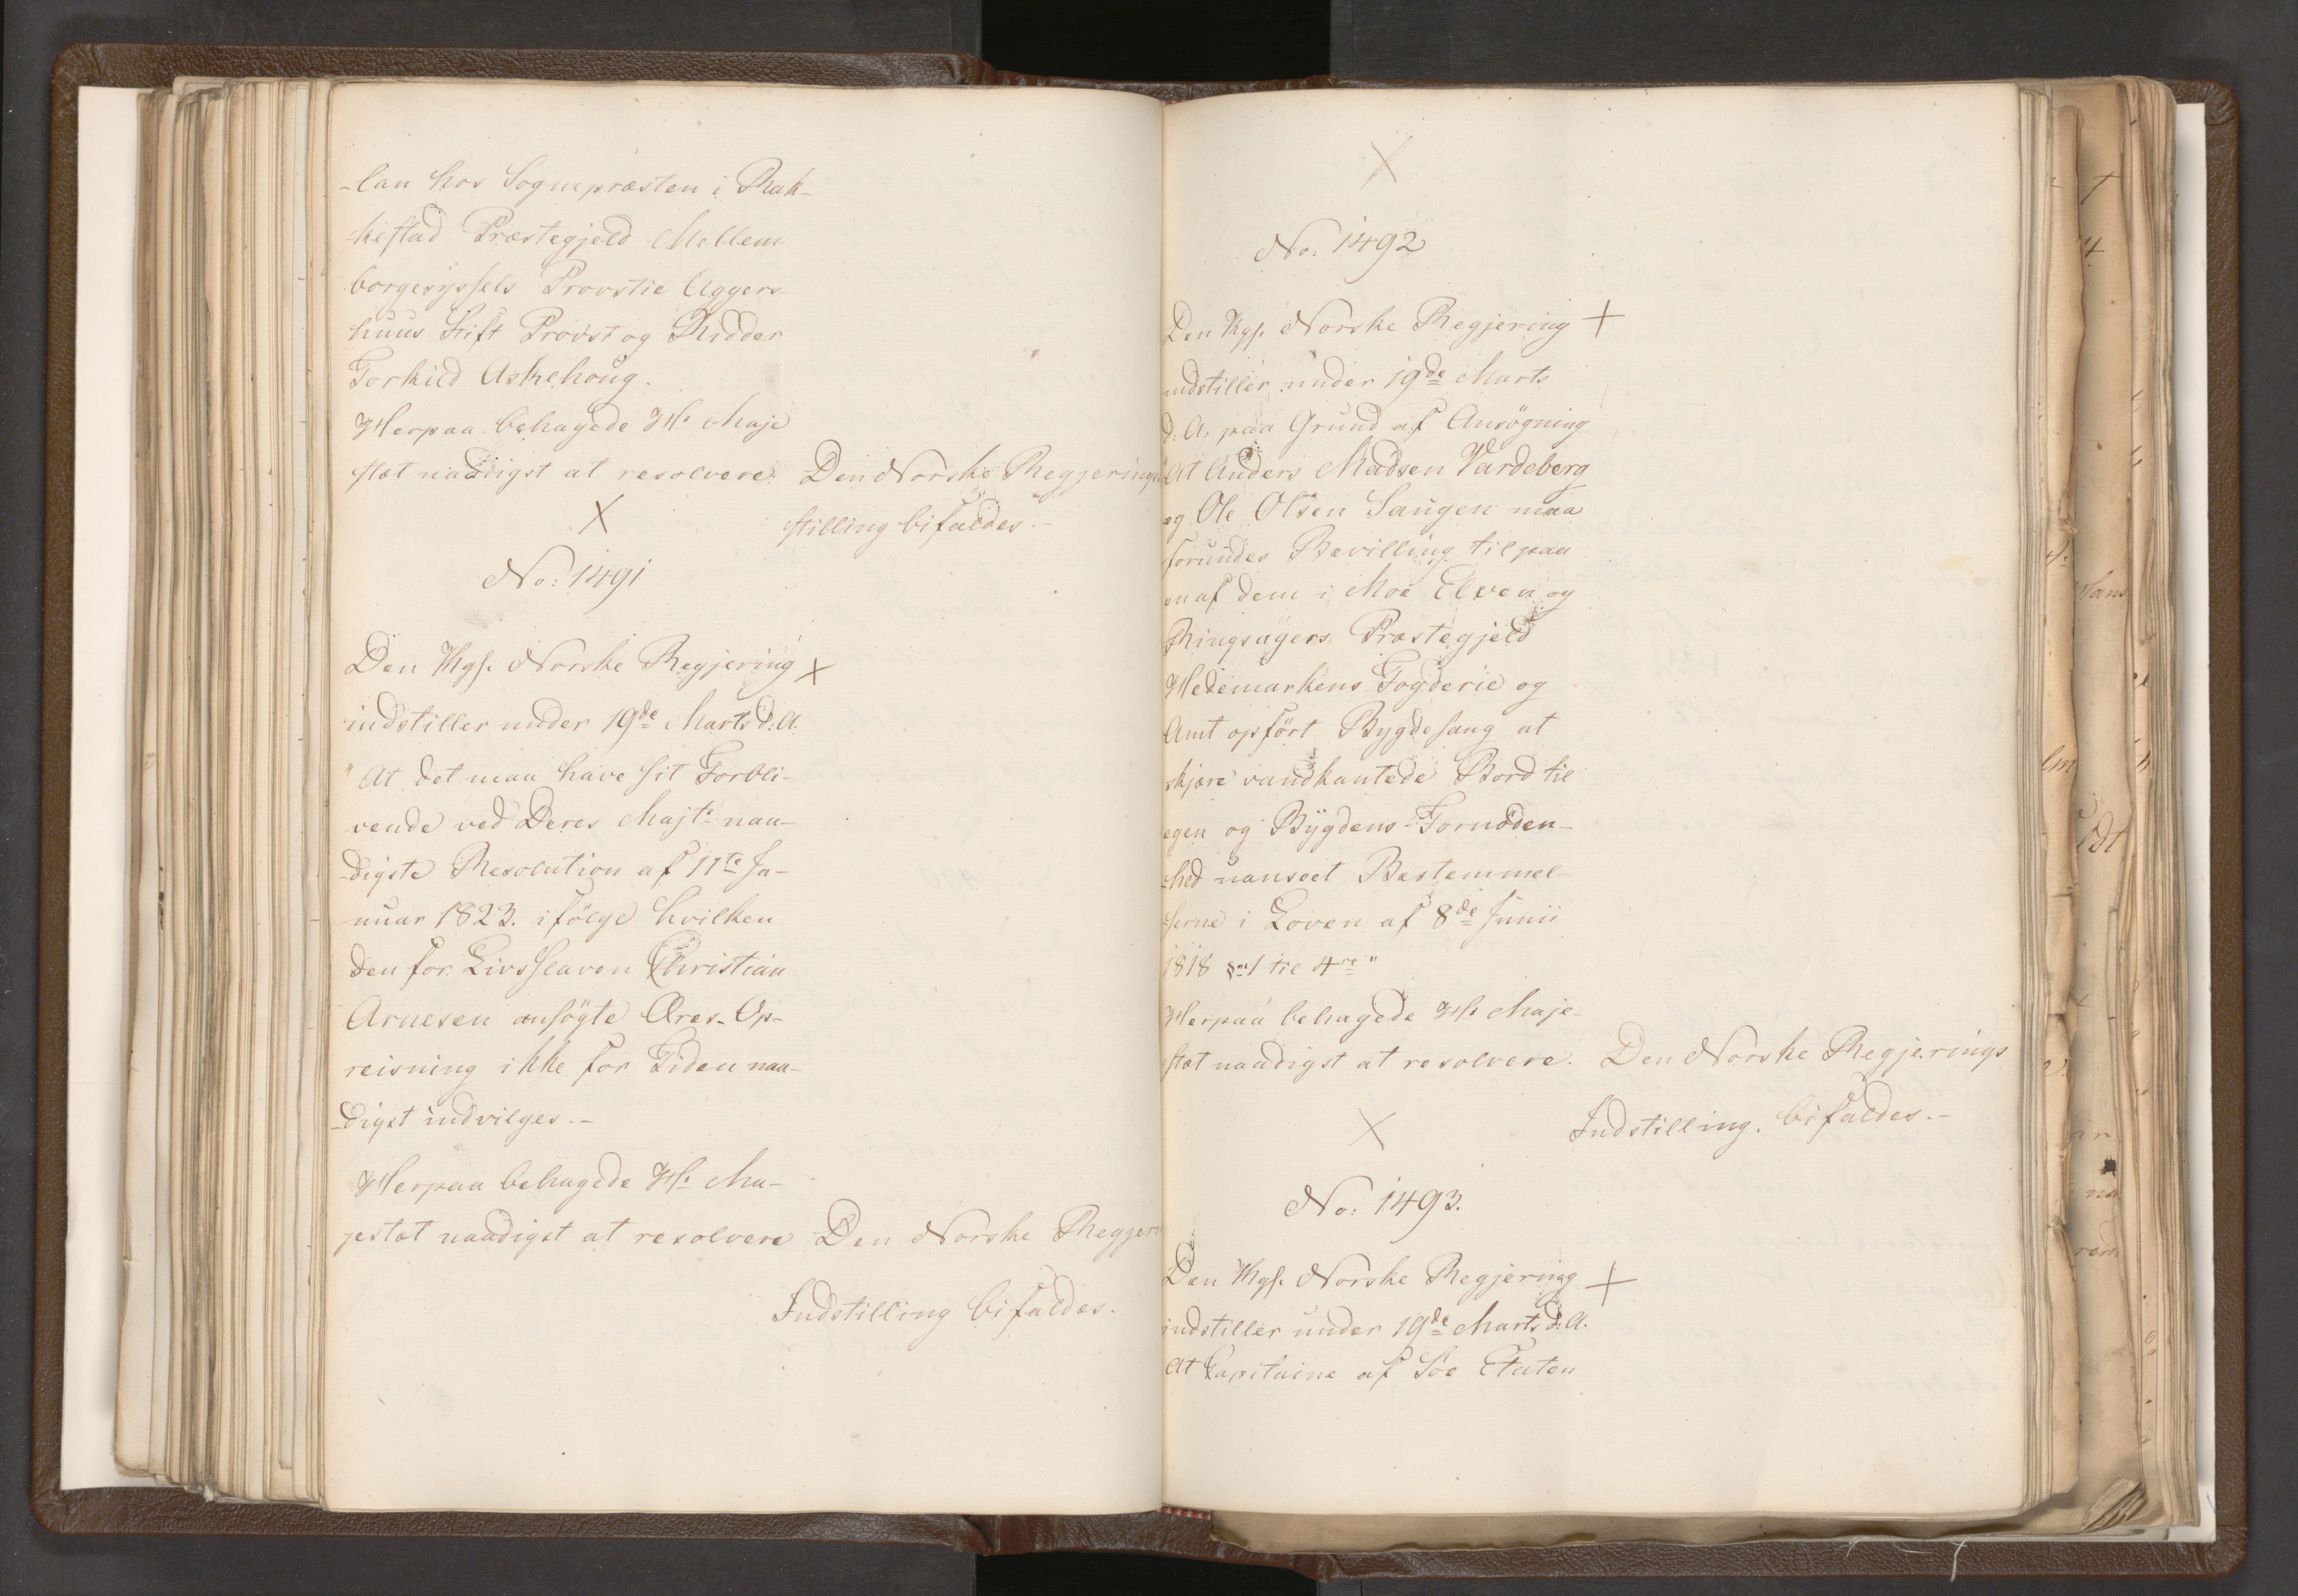 -lan hos Sognepræsten i Rak-
kestad Præstegjeld Mellem
borgesyssels Provstie Aggers-
huus Stift Provst og Ridder
Torkild Askehoug.
Herpaa behagede Hs Maje
stæt naadigst at resolvere: Den Norske Regjerings
stilling bifaldes.-
No: 1491
Den Kgl. Norske Regjering
indstiller under 19de Marts d: A.
"At det maa have sit Forbli-
vende ved Deres Majts naa-
-digste Resolution af 11te Ja-
nuar 1823. ifölge hvilken
den for Livsslaven Christian
Arnesen ansögte Æres-Op-
reisning ikke for Tiden naa-
-digst indvilges.-
Herpaa behagede Hs Ma-
jestæt naadigst at resolvere Den Norske Regjer
Indstilling bifaldes.
No: 1492
Den Kgl. Norske Regjering
indstiller under 19de Marts
d: A: paa Grund af Ansögning
"At Anders Madsen Vardeberg
og Ole Olsen Saugen maa
forundes Bevilling til paa
en af dem i Moe Elven og
Ringsagers Præstegjeld
Hedemarkens Fogderie og
Amt opfört Bygdesaug at
skjære vandkantede Bord til
egen og Bygdens Fornöden-
-hed uanseet Bestemmel-
serne i Loven af 8de Junii
1818 § 1 til 4re"
Herpaa behagede Hs Maje-
stæt naadigst at resolvere. Den Norske Regjerings
Indstilling. bifaldes.-
No: 1493.
Den Kgl. Norske Regjering
indstiller under 19de Marts d: A.
At Capitaine af Söe Etaten